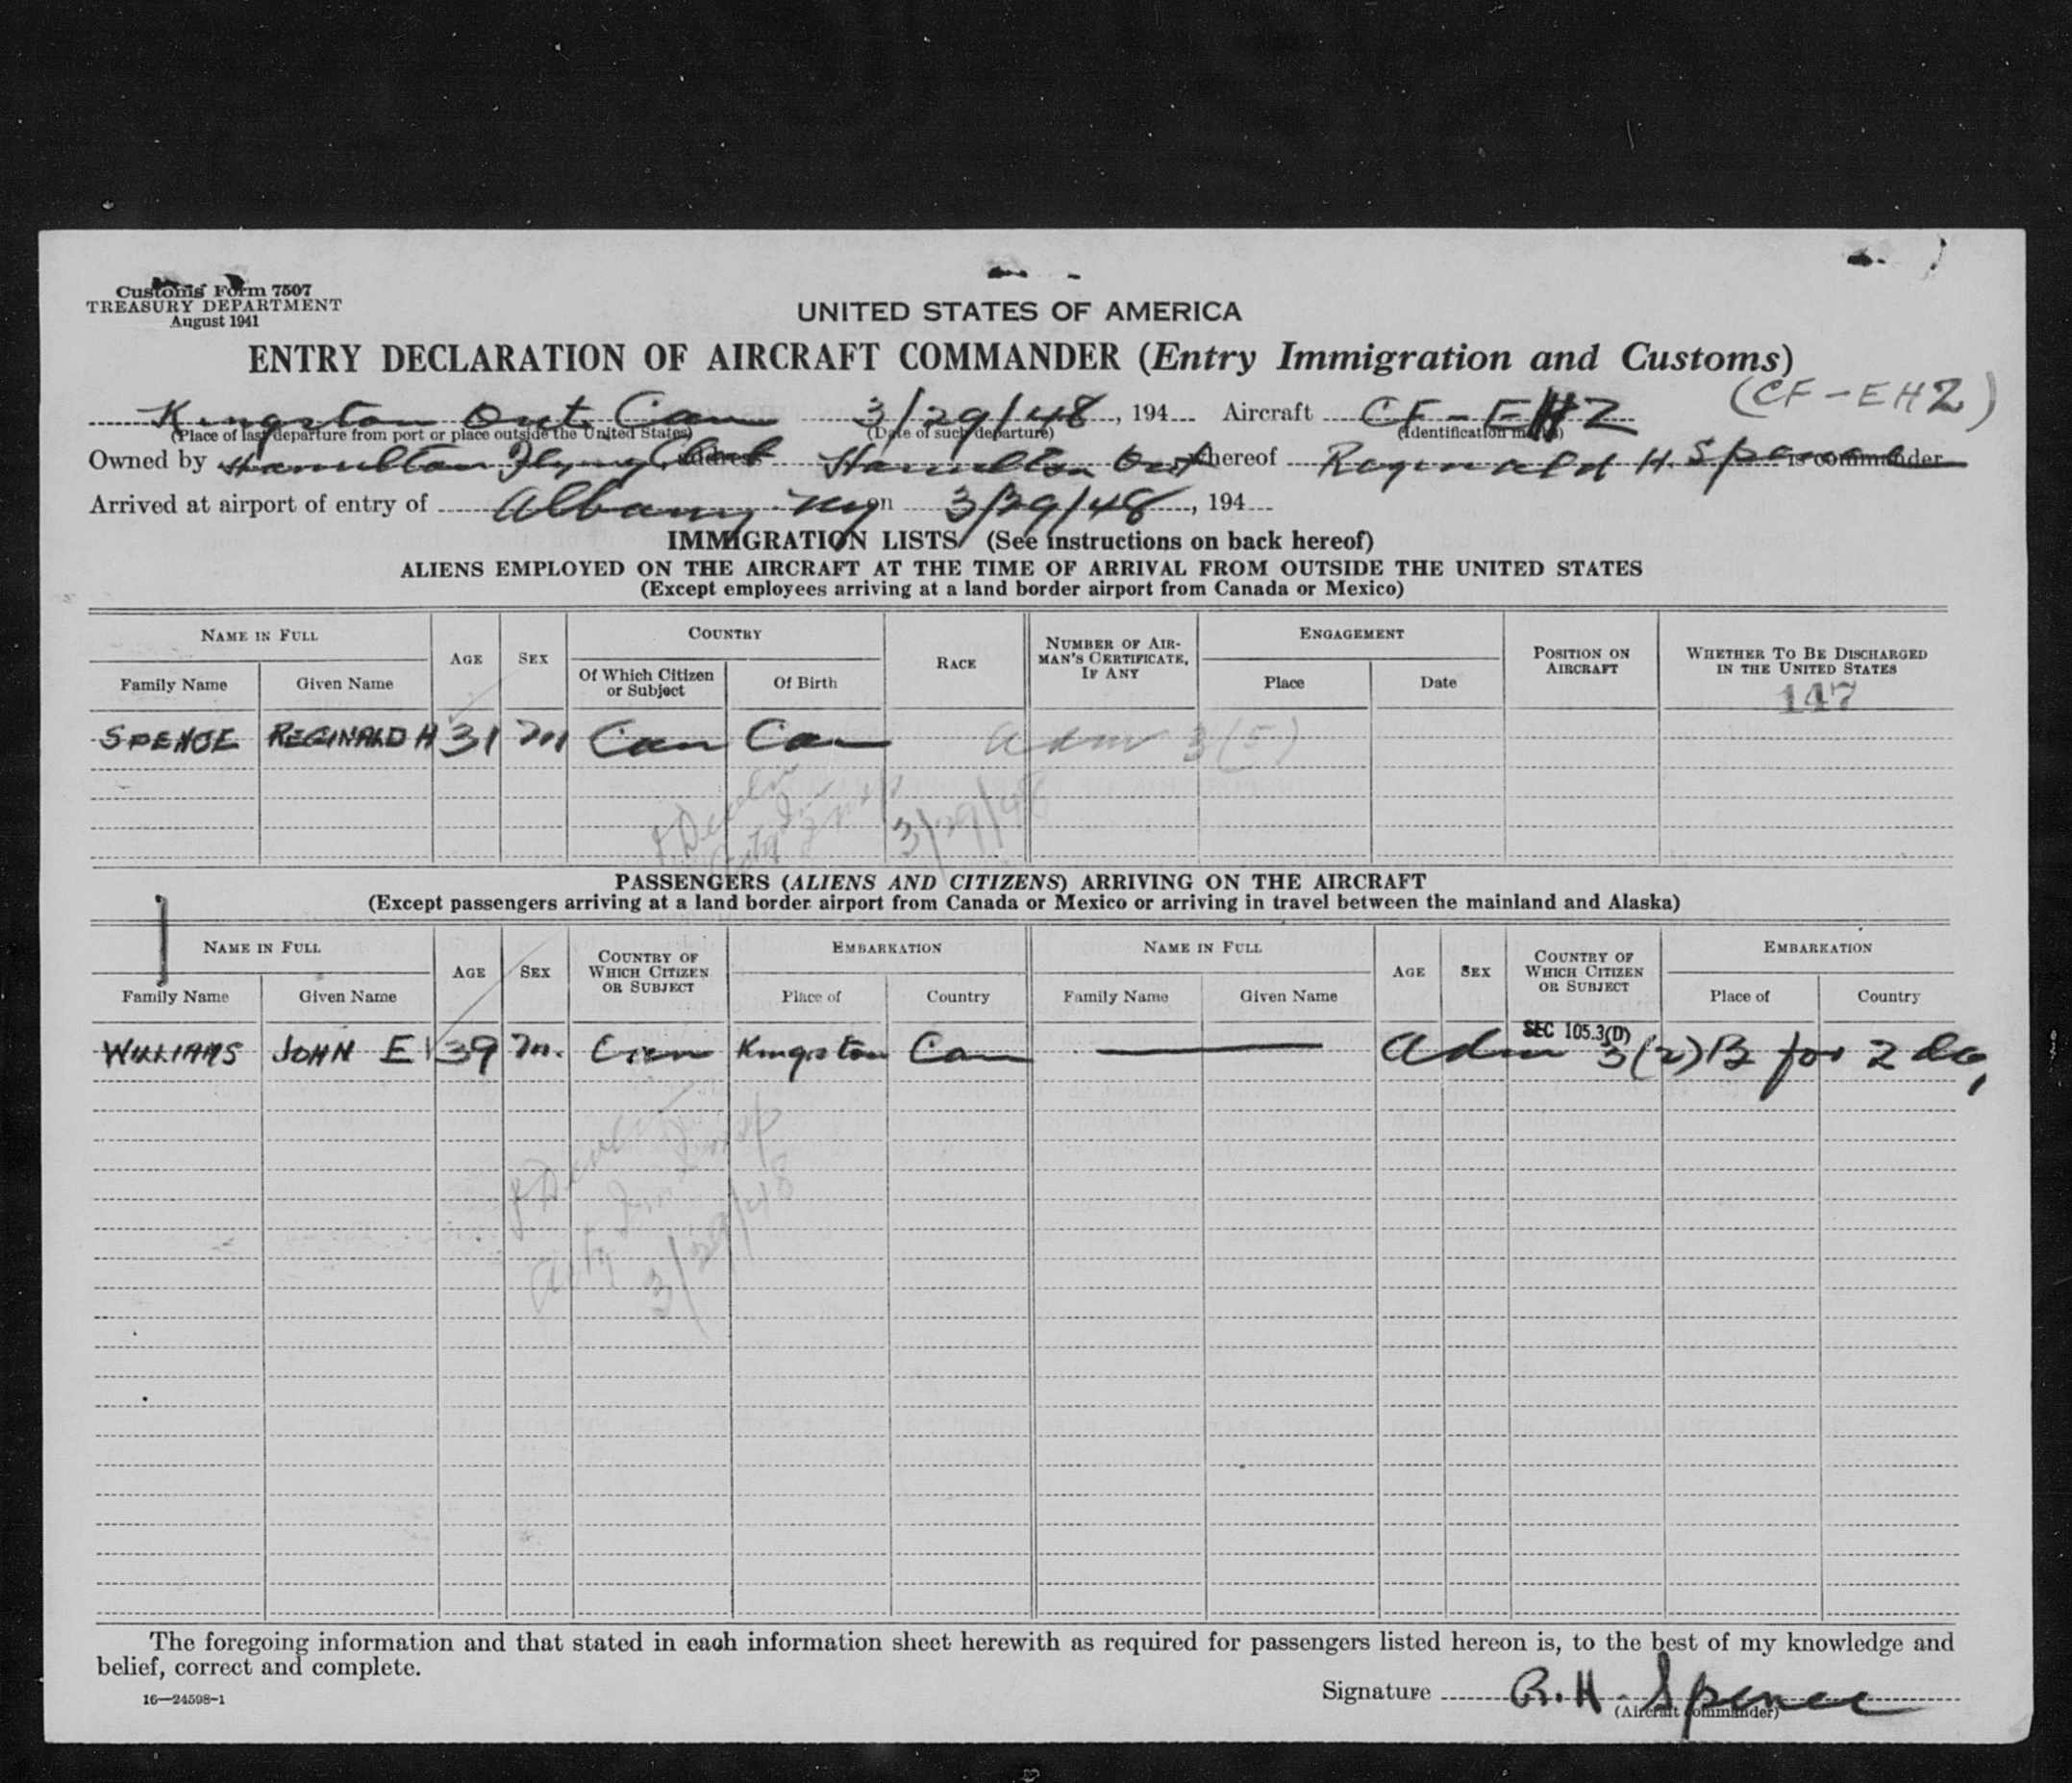 Customs Form 7507
TREASURY DEPARTMENT
August 1941
UNITED STATES OF AMERICA
ENTRY DECLARATION OF AIRCRAFT COMMANDER (Entry Immigration and Customs)
Kingston Ont. Can 3/29/48, 194 Aircraft CF-EHZ (CF-EHZ)
(Place of last departure from port or place outside the United States) (Date of such departure) (Identification marks)
Owned by Hamilton Flying Club address Hamilton Ont whereof Reginald H. Spence is commander
Arrived at airport of entry of Albany NY on 3/29/48, 194
IMMIGRATION LISTS (See instructions on back hereof)
ALIENS EMPLOYED ON THE AIRCRAFT AT THE TIME OF ARRIVAL FROM OUTSIDE THE UNITED STATES
(Except employees arriving at a land border airport from Canada or Mexico)
NAME IN FULL AGE SEX COUNTRY RACE NUMBER OF AIRMAN'S CERTIFICATE, IF ANY ENGAGEMENT POSITION ON AIRCRAFT WHETHER TO BE DISCHARGED IN THE UNITED STATES
Family Name Given Name Of Which Citizen or Subject Of Birth Place Date
147
SPENCE REGINALD H 31 M Can Can Adm 3(5)
3/29/48
PASSENGERS (ALIENS AND CITIZENS) ARRIVING ON THE AIRCRAFT
(Except passengers arriving at a land border airport from Canada or Mexico or arriving in travel between the mainland and Alaska)
NAME IN FULL AGE SEX COUNTRY OF WHICH CITIZEN OR SUBJECT EMBARKATION NAME IN FULL AGE SEX COUNTRY OF WHICH CITIZEN OR SUBJECT EMBARKATION
Family Name Given Name Place of Country Family Name Given Name Place of Country
SEC 105.3(D)
WILLIAMS JOHN E 39 M. Can Kingston Can Adm 3(2)B for 2
3/29/48
The foregoing information and that stated in each information sheet herewith as required for passengers listed hereon is, to the best of my knowledge and
belief, correct and complete.
16—24598-1
Signature R. H. Spence
(Aircraft Commander)